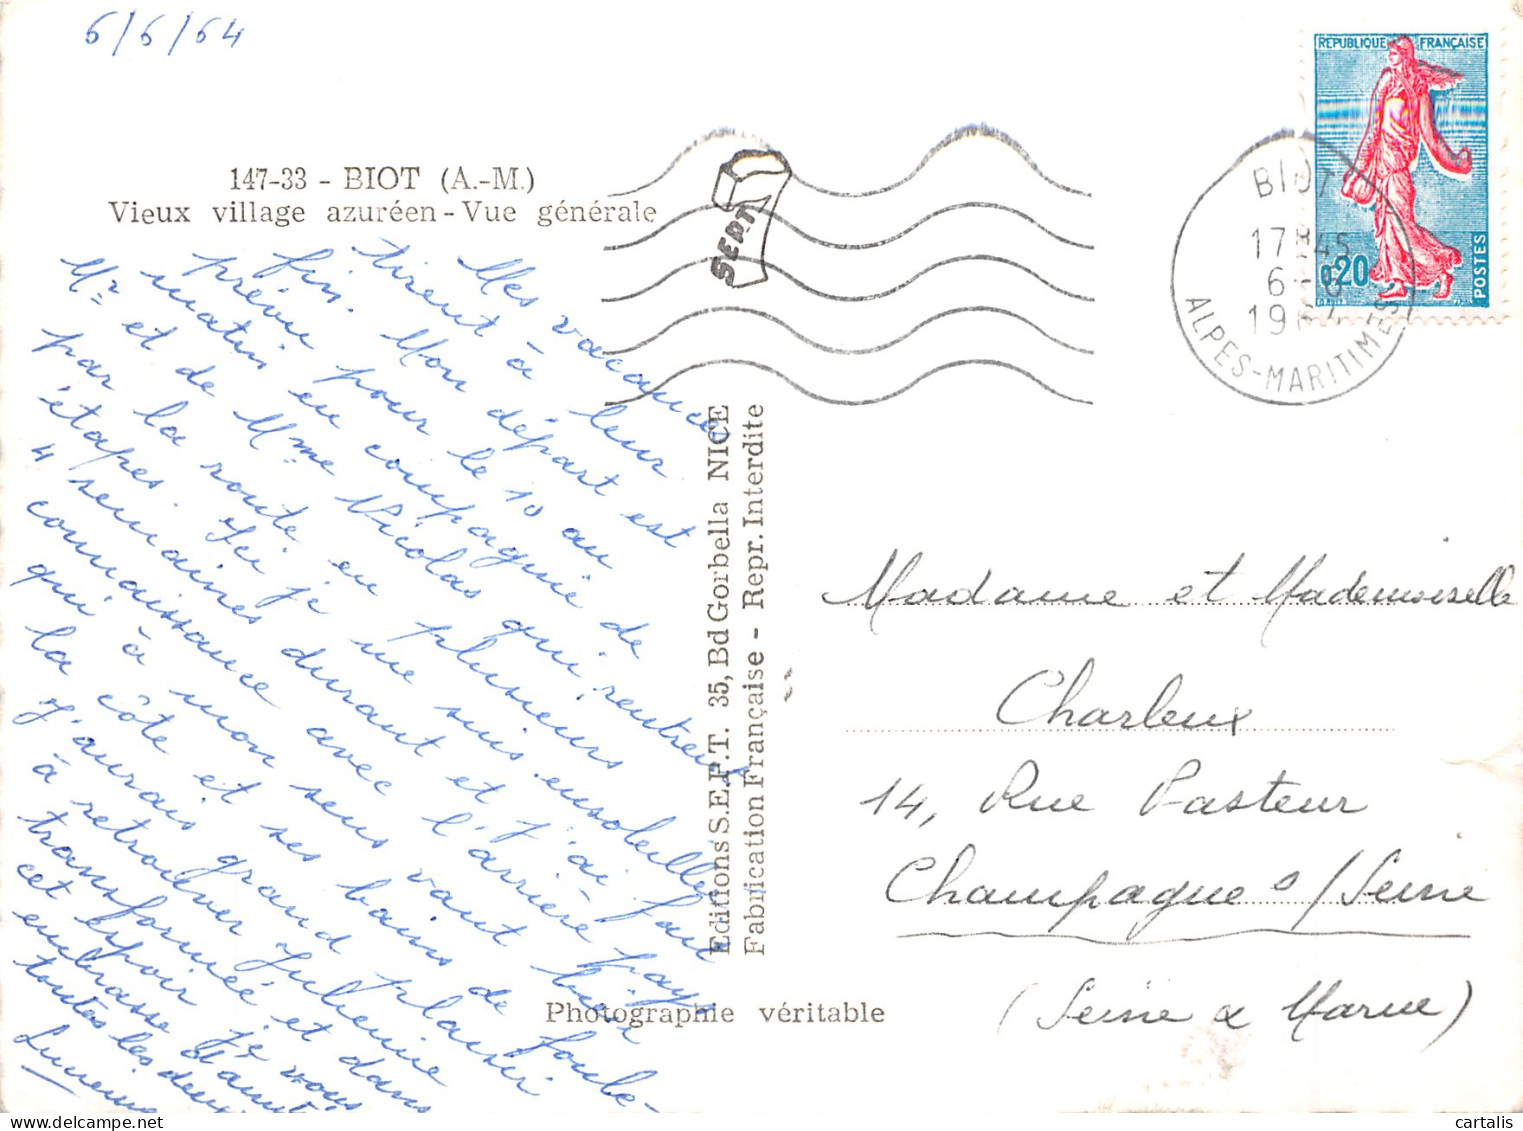 6/6/64
147-33 - BIOT (A.-M.)
Vieux village azuréen - Vue générale
Mes vacances
tirent à leur
fin. Mon départ est
prévu pour le 10 au
matin en compagnie de
Mr et de Mme Nicolas qui rentrent
par la route en plusieurs
étapes. Ici je me suis ensoleillée
4 semaines durant et j'ai fait
connaissance avec l'arrière pays
qui à mon sens vaut bien
la côte et ses bains de foule -
J'aurais grand plaisir
à retrouver Julienne
transformée et dans
cet espoir je vous
embrasse d'amitié
toutes les deux
Lucienne
Editions S.E.P.T. 35, Bd Gorbella NICE
Fabrication Française - Repr. Interdite
Photographie véritable
SEPT
REPUBLIQUE FRANÇAISE
0,20
POSTES
BIOT
17H45
6-6
19
ALPES-MARITIMES
Madame et Mademoiselle
Charleux
14, Rue Pasteur
Champagne s/Seine
(Seine & Marne)
cartalis